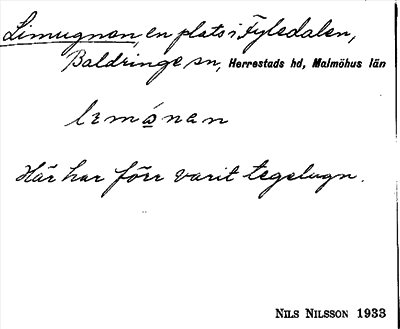 Limugnan, en plats i Fyledalen,
Baldringe sn, Herrestads hd, Malmöhus län
Här har förr varit tegelugn.
NILS NILSSON 1933